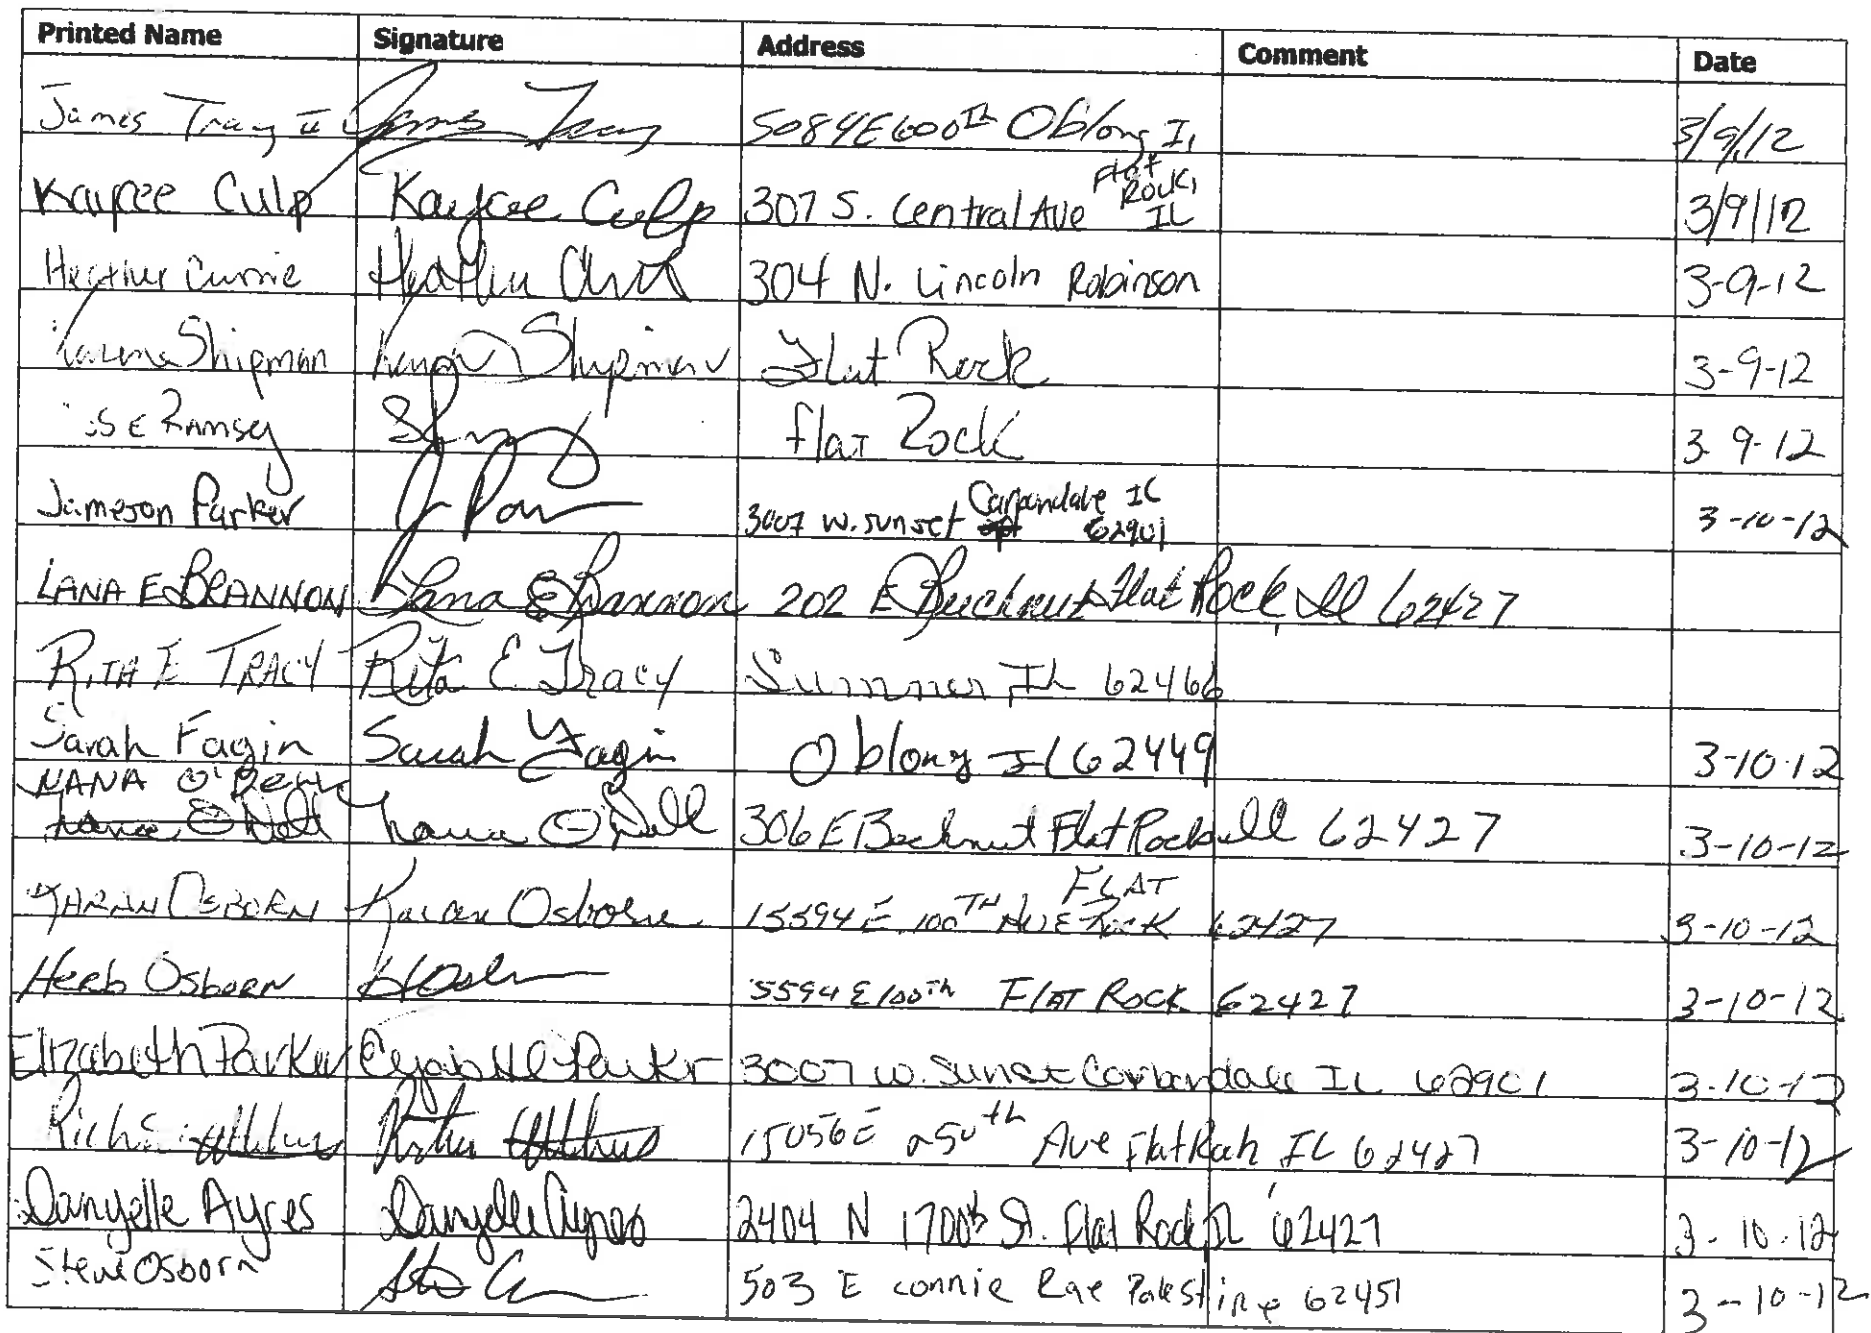 Printed Name Signature Address Comment Date
James Tracy II James Tracy 5084E600th Oblong IL 3/9/12
Kaycee Culp Kaycee Culp 307 S. Central Ave Flat Rock, IL 3/9/12
Heather Currie Heather 304 N. Lincoln Robinson 3-9-12
Shipman Shipman Flat Rock 3-9-12
S E Ramsey Flat Rock 3 9-12
Jameson Parker 3007 W. Sunset Carbondale IL 62901 3-10-12
LANA E BRANNON Lana E Brannon 202 E Beechnut Flat Rock, Ill 62427
RITA E TRACY Rita E Tracy Sumner, IL 62466
Sarah Fagin Sarah Fagin Oblong IL 62449 3-10-12
NANA O'Dell
Nana O'Dell 306 E Beechnut Flat Rock Ill 62427 3-10-12
OSBORN Karan Osborn 15594 E 100TH AVE FLAT ROCK 62427 3-10-12
Herb Osborn 5594 E 100th FLAT ROCK 62427 3-10-12
Elizabeth Parker Elizabeth Parker 3007 W. Sunset Carbondale IL 62901 3-10-12
15056E 250th Ave Flat Rock IL 62427 3-10-12
Danyelle Ayres Danyelle Ayres 2404 N 1700th St. Flat Rock IL 62427 3-10-12
Steve Osborn 503 E Connie Rae Palestine 62451 3-10-12